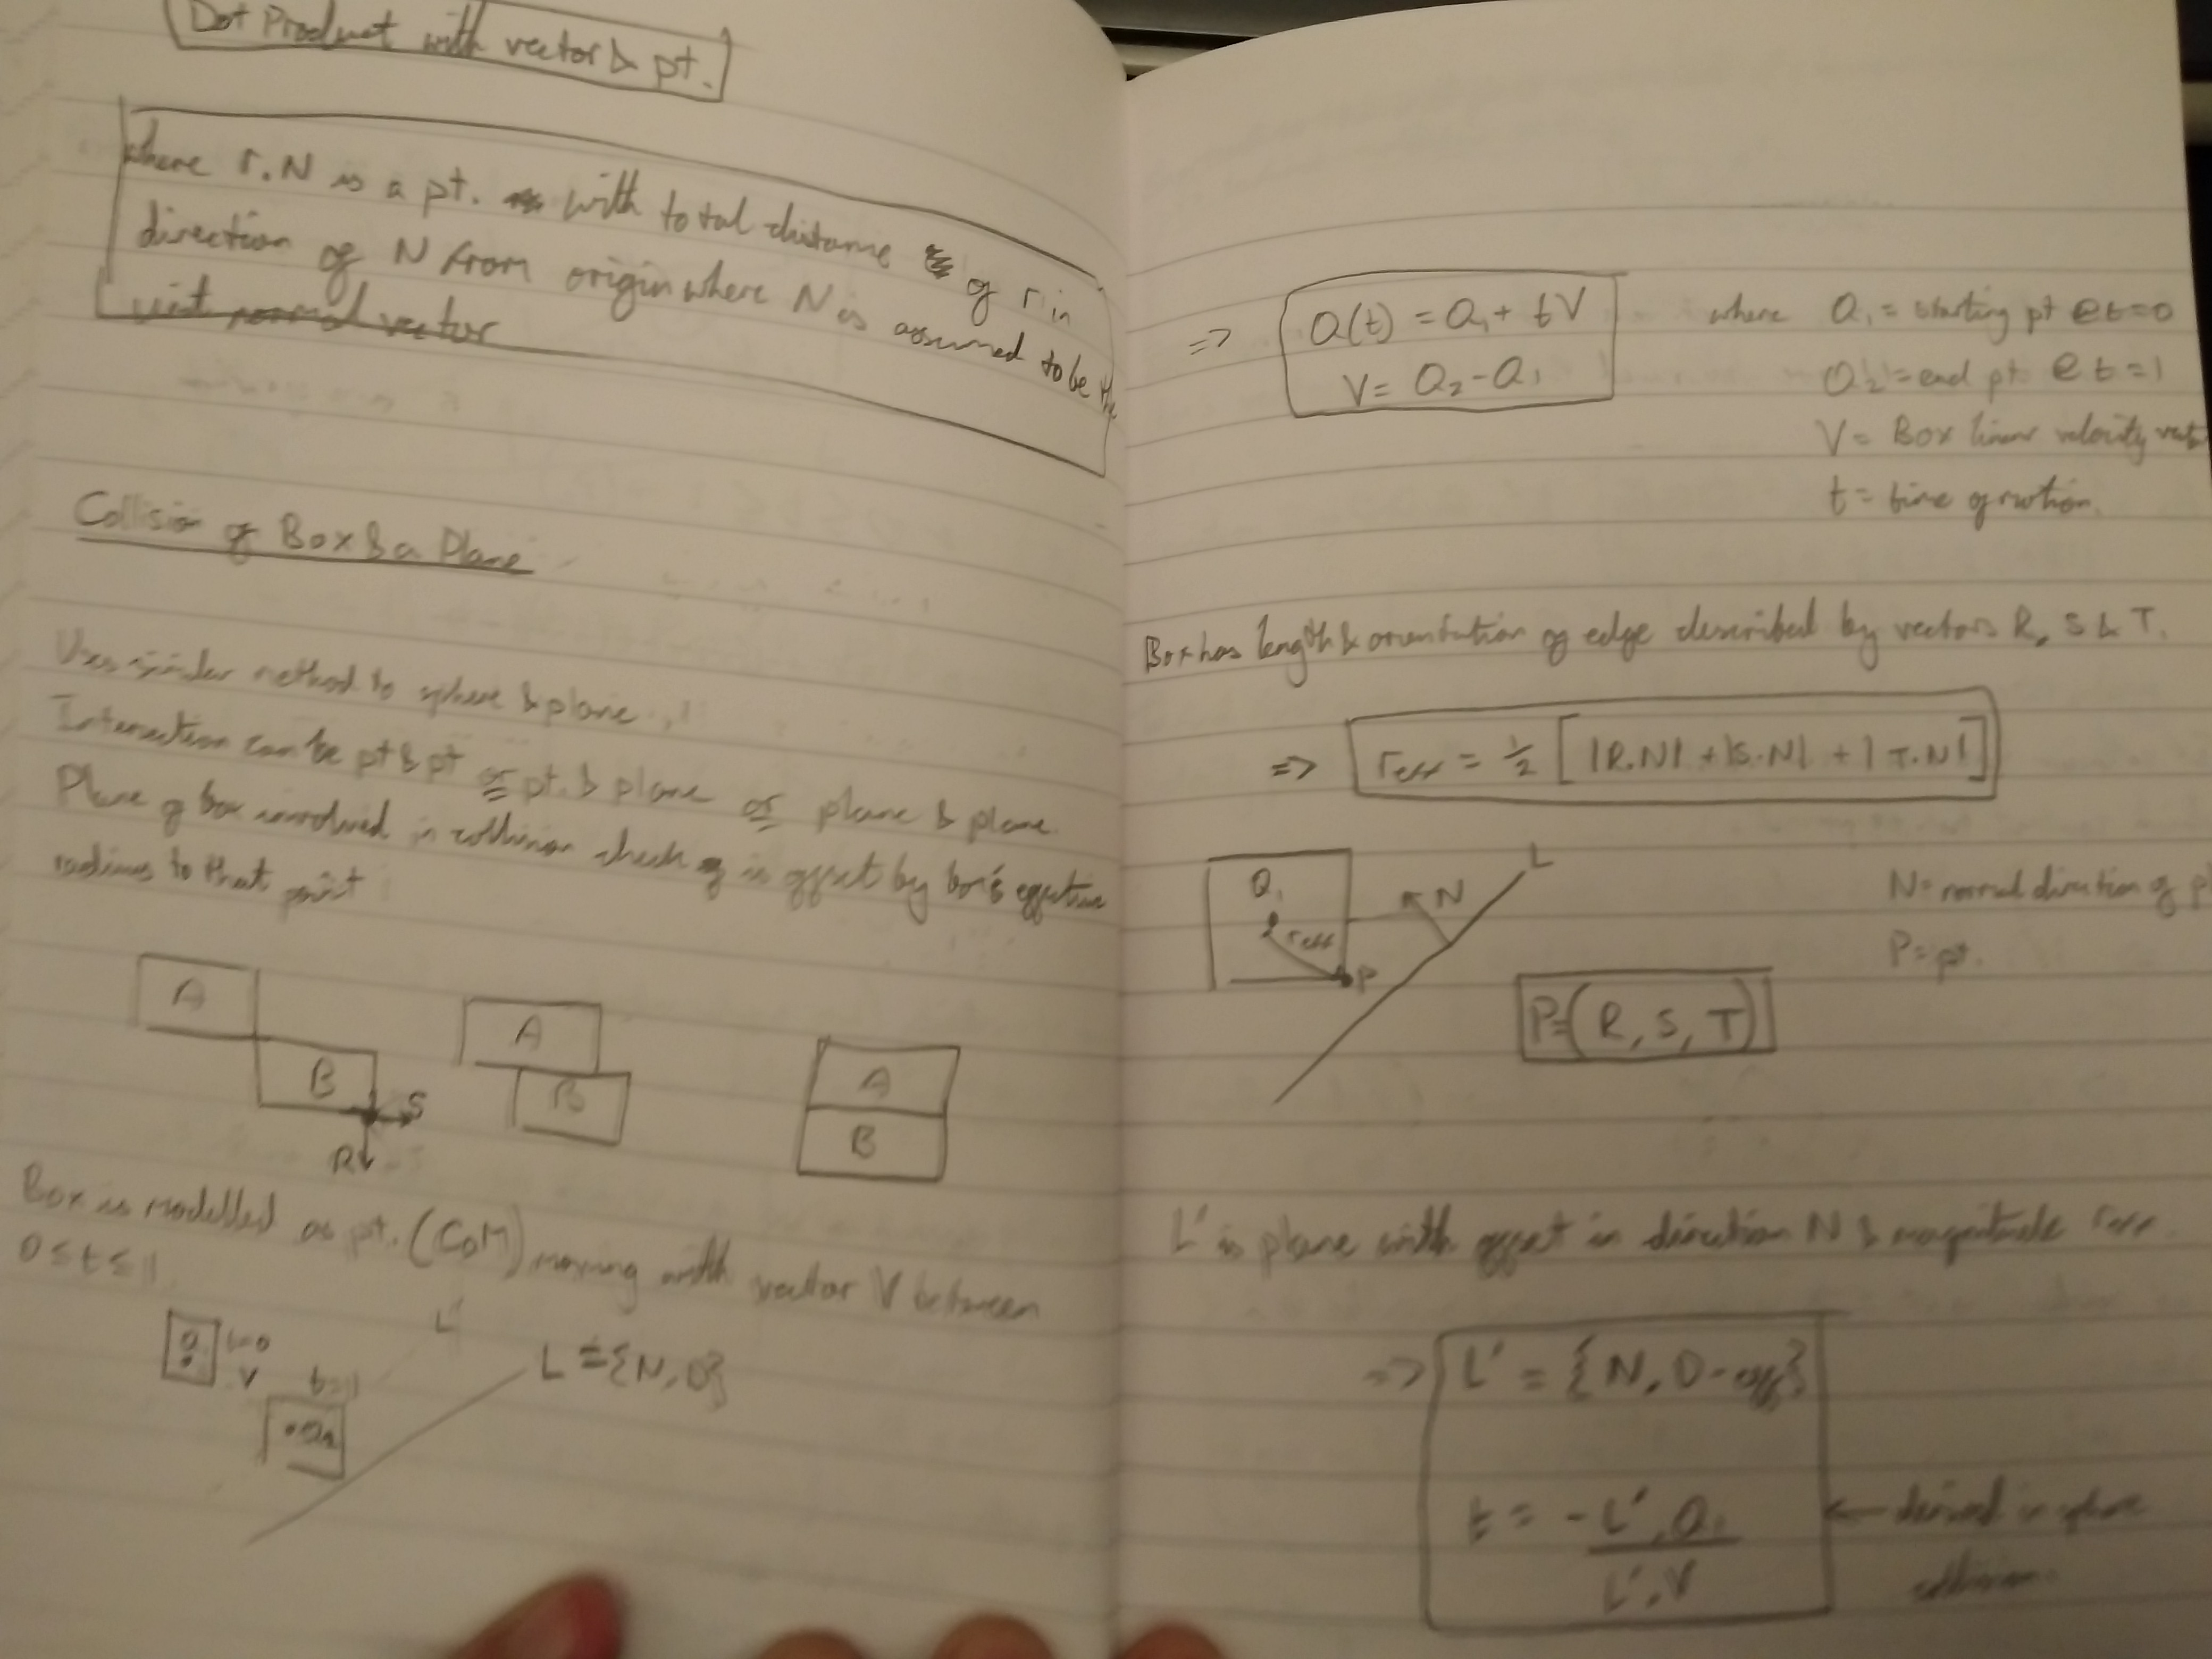 Dot Product with vector & pt.
where r.N is a pt. with total distance of r in
direction of N from origin where N is assumed to be the
unit normal vector
Collision of Box & a Plane
Uses similar method to sphere & plane.
Intersection can be pt & pt or pt. & plane or plane & plane.
Plane of box involved in collision check is offset by box's effective
radius to that point
A
B
S
R
A
B
A
B
Box is modelled as pt. (CoM) moving with vector V between
0 ≤ t ≤ 1
t=0
V
t=1
Q2
L'
L = {N, D}
=> Q(t) = Q1 + tV
V = Q2 - Q1
where Q1 = starting pt @ t=0
Q2 = end pt @ t=1
V = Box linear velocity vect
t = time of motion.
Box has length & orientation of edge described by vectors R, S & T.
=> reff = 1/2 [ |R.N| + |S.N| + |T.N| ]
Q1
reff
P
N
L
N = normal direction of pl
P = pt.
P=(R, S, T)
L' is plane with offset in direction N & magnitude reff.
=> L' = {N, D-eff}
t = -L'.Q1 / L'.V
<- derived in sphere
collision.